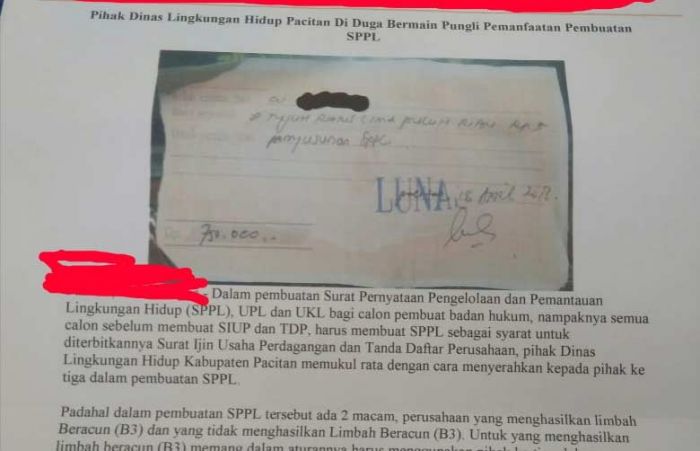 Pihak Dinas Lingkungan Hidup Pacitan Di Duga Bermain Pungli Pemanfaatan Pembuatan
SPPL
Tujuh Ratus Lima puluh Ribu Rp
penyusunan SPPL
LUNAS
18 April
Rp 750.000,-
- Dalam pembuatan Surat Pernyataan Pengelolaan dan Pemantauan
Lingkungan Hidup (SPPL), UPL dan UKL bagi calon pembuat badan hukum, nampaknya semua
calon sebelum membuat SIUP dan TDP, harus membuat SPPL sebagai syarat untuk
diterbitkannya Surat Ijin Usaha Perdagangan dan Tanda Daftar Perusahaan, pihak Dinas
Lingkungan Hidup Kabupaten Pacitan memukul rata dengan cara menyerahkan kepada pihak ke
tiga dalam pembuatan SPPL.
Padahal dalam pembuatan SPPL tersebut ada 2 macam, perusahaan yang menghasilkan limbah
Beracun (B3) dan yang tidak menghasilkan Limbah Beracun (B3). Untuk yang menghasilkan
limbah beracun (B3) memang dalam aturannya harus menggunakan pihak ke tiga dalam